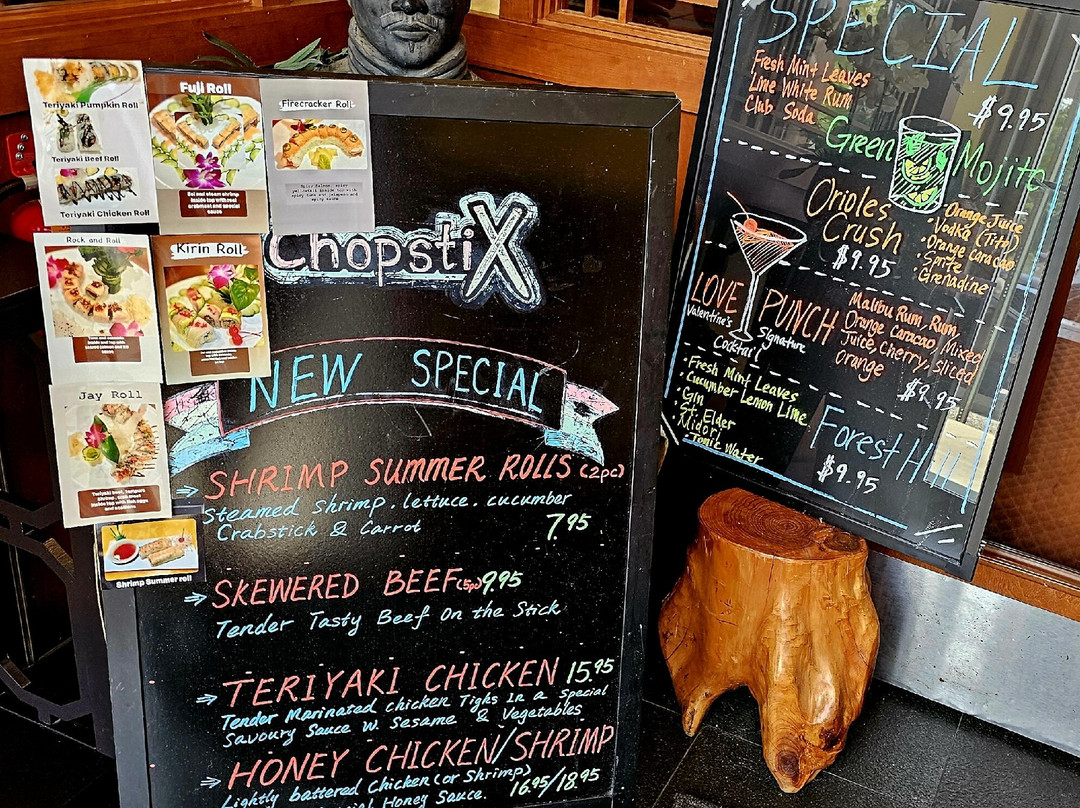 Teriyaki Pumpkin Roll
Teriyaki Beef Roll
Teriyaki Chicken Roll
Fuji Roll
Eel and steam shrimp
inside top with real
crabmeat and special
sauce
Firecracker Roll
Rock and Roll
Kirin Roll
Jay Roll
Shrimp Summer roll
ChopstiX
NEW SPECIAL
SHRIMP SUMMER ROLLS (2pc)
Steamed Shrimp. lettuce. cucumber
Crabstick & Carrot
7.95
SKEWERED BEEF (5pc) 9.95
Tender Tasty Beef On the Stick
TERIYAKI CHICKEN 15.95
Tender Marinated chicken Tighs In a Special
Savoury Sauce W. Sesame & Vegetables
HONEY CHICKEN/SHRIMP
Lightly battered Chicken (or Shrimp)
Honey Sauce. 16.95/18.95
SPECIAL
Fresh Mint Leaves
Lime White Rum
Club Soda
$9.95
Green Mojito
Orioles
Crush
$9.95
• Orange Juice
• Vodka (Tito)
• Orange Caracao
• Sprite
• Grenadine
LOVE PUNCH
Valentine's Signature
Cocktail
Malibu Rum, Rum,
Orange Caracao, Mixed
Juice, Cherry, Sliced
Orange
$9.95
• Fresh Mint Leaves
• Cucumber Lemon Lime
• Gin
• St. Elder
• Midori
• Tonic Water
Forest Hill
$9.95